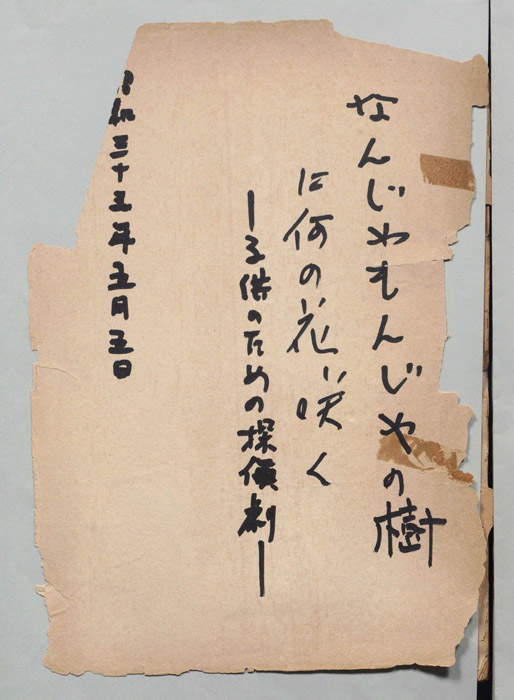 なんじゃもんじゃの樹
に何の花咲く
―子供のための探偵劇―
昭和三十五年五月五日